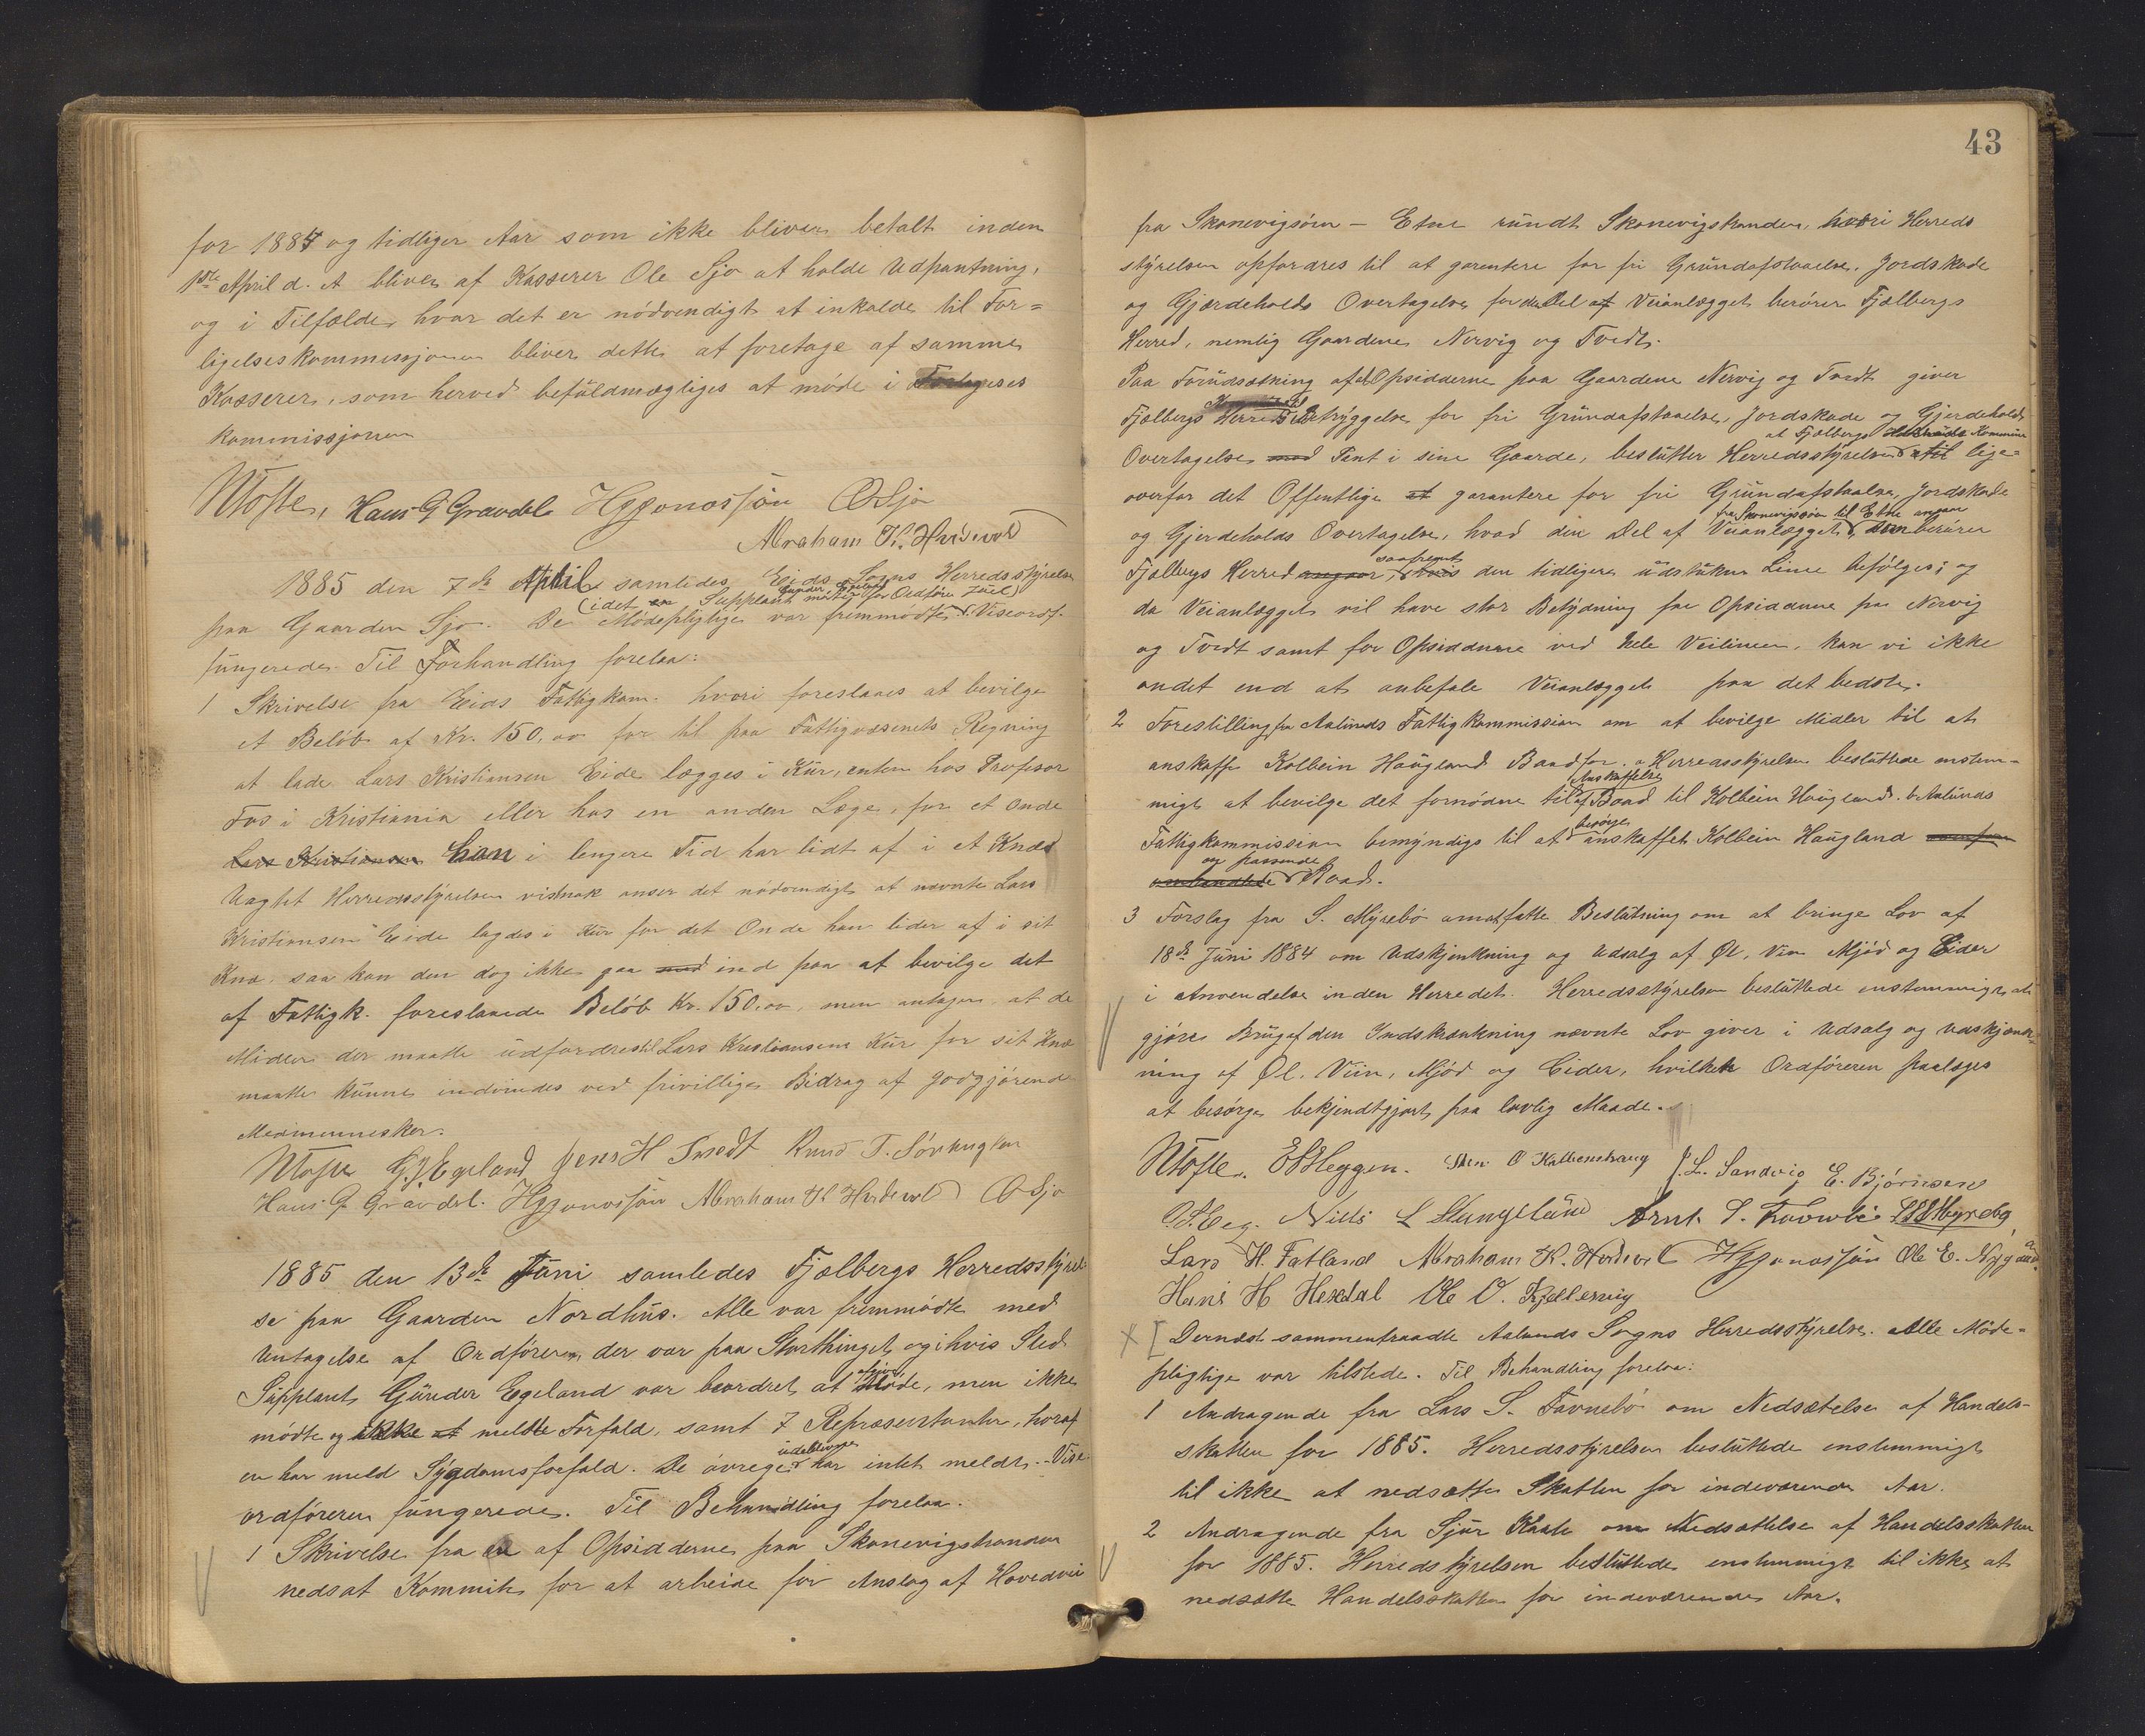 for 1884 og tidliger Aar som ikke bliver betalt inden
1ste April d. A bliver af Kasserer Ole Sjo at holde Udpantning,
og i Tilfælde, hvor det er nödvendigt at inkalde til For=
ligelseskommissjonen bliver dette at foretage af samme
Kasserer, som herved befuldmægtiges at möde i Forligelses
kommissjonen
NTofte, Hans G Gravdal HGjonassön OSjo
Abraham K. Handeval
1885 den 7de April samledes Eids Sogns Herredsstyrelse
(idet en Supplant Gunder Egeland möder for Ordförer Juel)
paa Gaarden Sjo. De Mödepligtige var fremmödte. Viseordf.
fungerede. Til Forhandling forelaa:
1 Skrivelse fra Eids Fattigkom. hvori foreslaaes at bevilge
et Belöb af Kr. 150,00 for til paa Fattigvæsenets Regning
at lade Lars Kristiansen Eide lægges i Kur, enten hos Profesor
Fos i Kristiania eller hos en anden Læge, for et Onde
Lars Kristiansen han i lengere Tid har lidt af i et Knæ
Uagtet Herredsstyrelsen vistnok anser det nödvendigt at nævnte Lars
Kristiansen Eide lagdes i Kur for det Onde han lider af i sit
Knæ, saa kan den dog ikke gaa med ind paa at bevilge det
af Fattigk. foreslaaede Belöb Kr. 150,00, men antager, at de
Midler der maatte udfordres til Lars Kristiansens Kur for sit Knæ
maatte kunne indvindes ved frivillige Bidrag af godgjörende
Medmennesker.
NTofte G.J. Egeland Jens H Tvedt Knud T. Sörhuglen
Hans G Gravdal. HGjonassön Abraham K Handeval OSjo
1885 den 13de Juni samledes Fjelbergs Herredsstyrel
se paa Gaarden Nordhus. Alle var fremmödte med
Untagelse af Ordföreren, der var paa Storthinget, og i hvis Sted
Supplant Gunder Egeland var beordret at möde, men ikke
mödte og ikke at meldte Forfald, samt 7 Repræsentanter, hvoraf
en har meld Sygdomsforfald. De övrige udeblevne har intet meldt. Vise
ordföreren fungerede. Til Behandling forelaa.
1 Skrivelse fra en af Opsidderne paa Skonevigstranden
nedsat Kommite for at arbeide for Anlæg af Hovedvei
43
fra Skonevigsöen – Etne rundt Skonevigstranden, hvori Herreds
styrelsen opfordres til at garentere for fri Grundafstaaelse, Jordskade
og Gjærdeholds Overtagelse for den Del af Veianlægget berörer Fjelbergs
Herred, nemlig Gaardene Nervig og Tvedt.
Paa Forudsætning af at Opsidderne paa Gaardene Nervig og Tvedt giver
Fjelbergs Herred Betryggelse for fri Grundafstaaelse, Jordskade og Gjerdeholds
at Fjelbergs Kommune
Overtagelse med Pant i sine Gaarde, beslutter Herredsstyrelsen til lige-
overfor det Offentlige at garantere for fri Grundafstaalse, Jordskade
fra Skonevigsöen til Etne angaar
og Gjerdeholds Overtagelse, hvad den Del af Veianlægget, den berörer
saafremt
Fjelbergs Herred angaar, hvis den tidligere udstukne Linie befölges; og
da Veianlægget vil have stor Betydning for Opsidderne paa Nervig
og Tvedt samt for Opsidderne ved hele Veilinien, kan vi ikke
andet end at anbefale Veianlægget paa det bedste.
2 Forestilling fra Aalunds Fattigkommission om at bevilge Midler til at
anskaffe Kolbein Haugland Baad for. a Herredsstyrelsen besluttede enstem-
Anskaffelse
migt at bevilge det fornödne til af Baad til Kolbein Haugland. b. Aalunds
besörge
Fattigkommission bemyndiges til at anskaffet Kolbein Haugland
en passende
Baad.
3 Forslag fra S. Myrebö om at fatte Beslutning om at bringe Lov af
18de Juni 1884 om Udskjenkning og Udsalg af Öl, Vin Mjöd og Cider
i Anvendelse inden Herredet. Herredsstyrelsen besluttede enstemmigt at
gjöre Brug af den Indskrænkning nævnte Lov giver i Udsalg og Udskjænk-
ning af Öl, Viin, Mjöd og Cider, hvilket Ordföreren paalægges
at besörge bekjendtgjort paa lovlig Maade.
NTofte. Sten O Kolbenshaug J. L. Sandvig E. Björnsens
Niels L Stangeland Arnt S. Myrebö
Lars H. Fatland Abraham K. Handeval HGjonassön Ole E. Nygaard
Hans H Hesdal Ole O. Kjellesvig
[Dernæst sammentraadte Aalunds Sogns Herredsstyrelse. Alle Möde-
pligtige var tilstede. Til Behandling forelaa:
1 Andragende fra Lars S. Tavnebö om Nedsættelse af Handels-
skatten for 1885. Herredsstyrelsen besluttede enstemmigt
til ikke at nedsætte Skatten for indeværende Aar.
2 Andragende fra Sjur Kaale om Nedsættelse af Handelsskatten
for 1885. Herredstyrelsen besluttede enstemmigt til ikke at
nedsætte Handelsskatten for indeværende Aar.